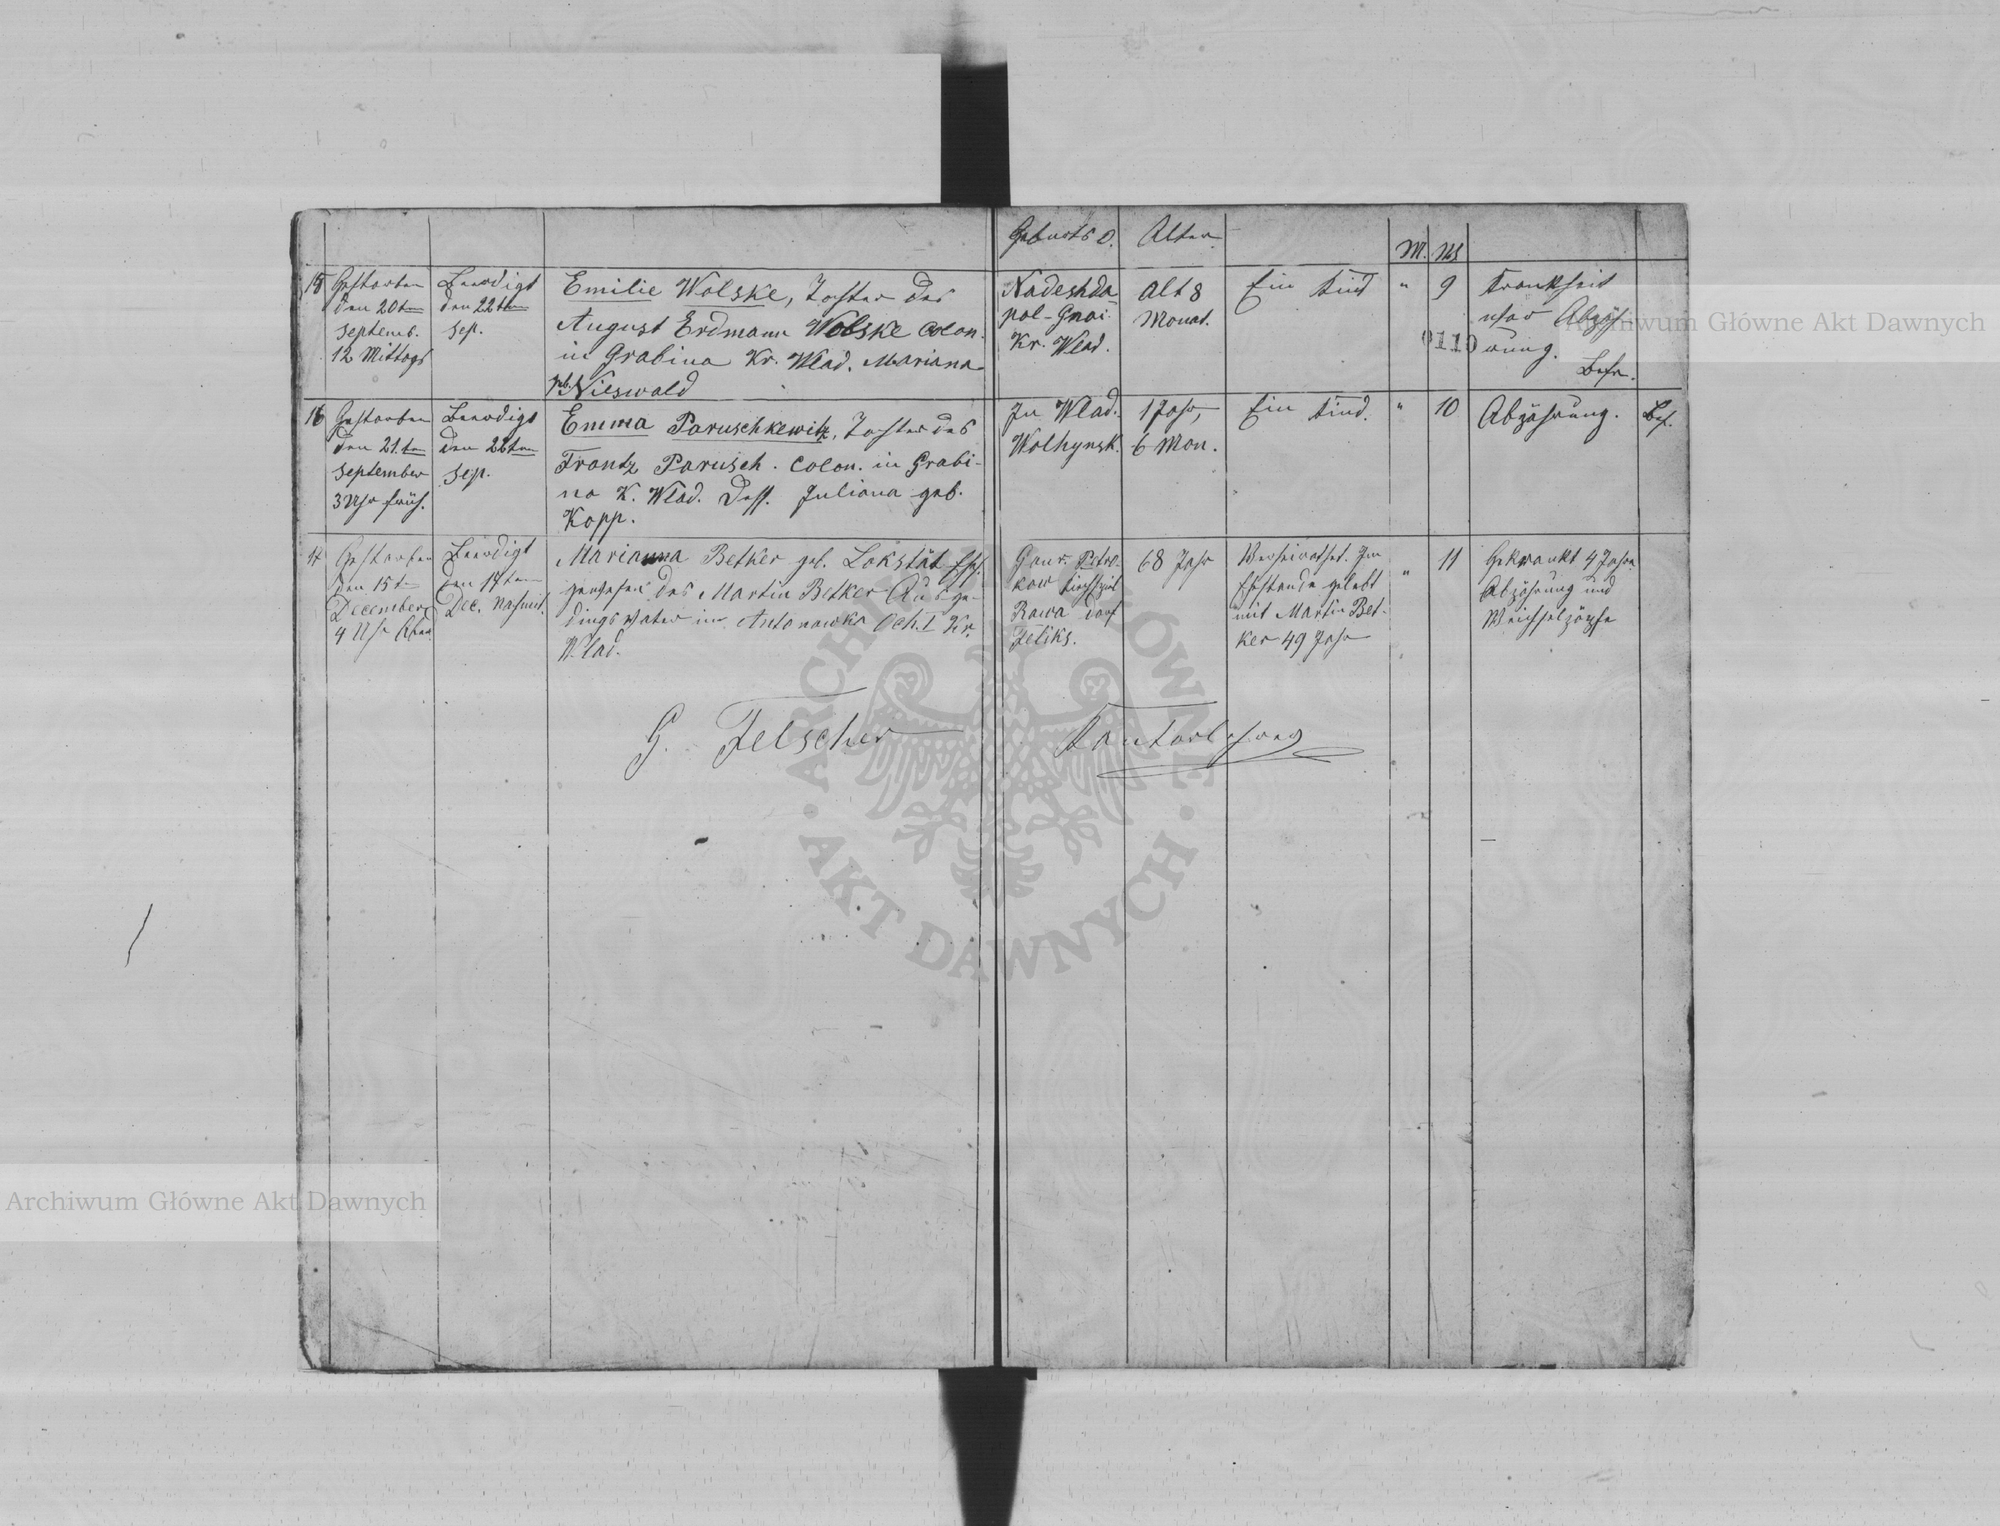 Geburts O. Alter M. W
15 Gestorben den 20ten Septemb. 12 Mittags
Beerdigt den 22ten Sep.
Emilie Wolske, Tochter des
August Erdmann Wolske Colon.
in Grabina Kr. Wlad. Mariana
geb. Nieswald
Nadeshda
pol-Gnoi
Kr. Wlad.
Alt 8
Monat.
Ein Kind
" 9
Krankheit
war Abzäh-
rung.
Besn.
0110
16 Gestorben
den 21.ten
September
3 Uhr früh.
Beerdigt
den 22ten
Sep.
Emma Paruschkewitz, Tochter des
Frantz Parusch. Colon. in Grabi-
na K. Wlad. Dess. Juliana geb.
Kopp.
In Wlad.
Wolhynsk.
1 Jahr,
6 Mon.
Ein Kind.
" 10
Abzährung.
Bes.
Gestorben
den 15ten
December
4 Uhr Aben
Beerdigt
den 17ten
Dec. Nachmit.
Marianna Betker geb. Lokstät
des Martin Betker Ausge-
dings Vater in Antonowka Och. I Kr.
Wlad.
Gouv. Petro-
kow Kirchspiel
Rawa Dorf
Zeliks.
68 Jahr
Verheirathet. Im
Ehestande gelebt
mit Martin Bet-
ker 49 Jahr
" 11
Gekrankt 4 Jahre
Abzährung und
Weichselzöpfe
G. Felscher Kantorlehrer
ARCHIWUM GŁÓWNE
AKT DAWNYCH
Archiwum Główne Akt Dawnych
Archiwum Główne Akt Dawnych